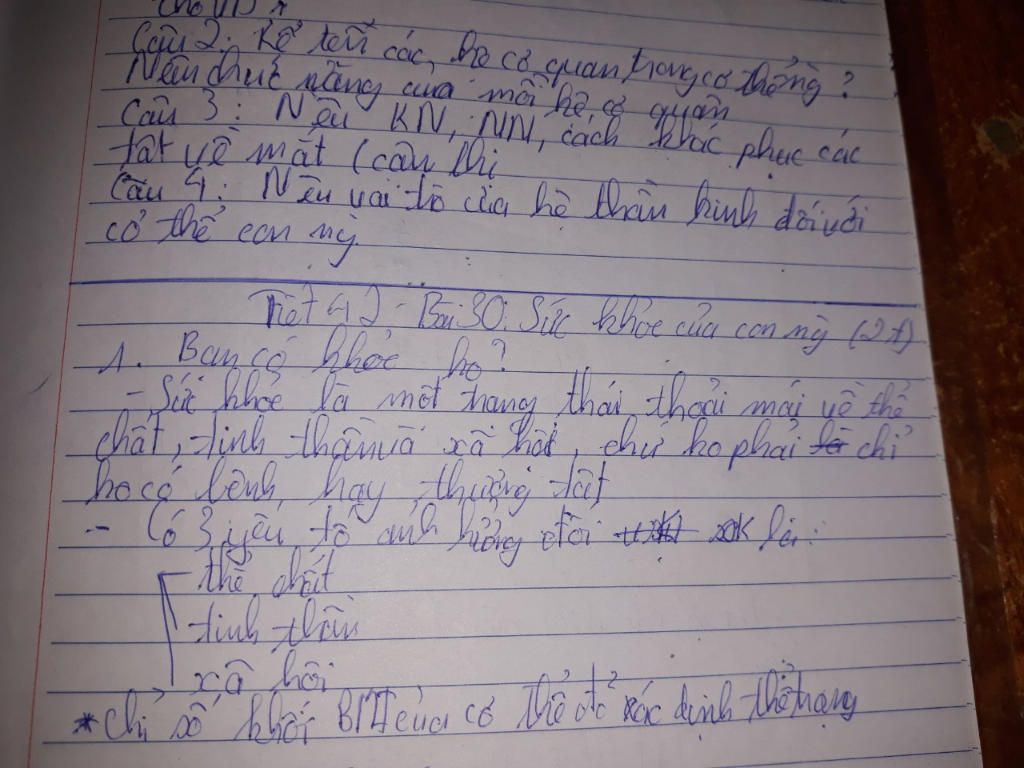 Câu 2: Kể tên các hệ cơ quan trong cơ thể ng?
Nêu chức năng của mỗi hệ cơ quan
Câu 3: Nêu KN, NN, cách khắc phục các
tật về mắt (cận thị
Câu 4: Nêu vai tò của hệ thần kinh đối với
cơ thể con ng`
Tiết 42 - Bài 30: Sức khỏe của con ng` (2t)
1. Bạn có khỏe ko?
- Sức khỏe là một trạng thái thoải mái về thể
chất, tinh thần và xã hội, chứ ko phải chỉ
ko có bệnh hay thương tật
- Có 3 yếu tố ảnh hưởng đối SK là:
thể chất
tinh thần
xã hội
* Chỉ số khối BMI của cơ thể để xác định thể trạng